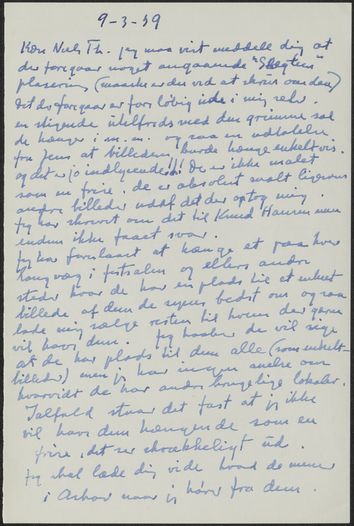 9-3-59
Kære Niels Th. jeg maa vist meddele dig at
der foregaar noget angaaende "Slægten"s
placering (maaske er du ved at skrive om den)
det der foregaar er foreløbig inde i mig selv.
en stigende utilfreds med den grimme sal
de hænger i m.m. og saa en udtalelse
fra Jens at billederne burde hænge enkeltvis.
og det er jo indlysende!!! De er ikke malet
som en frise, de er absolut malt ligesom
andre billeder udaf det der optog mig.
jeg har skrevet om det til Knud Hansen men
endnu ikke faaet svar.
jeg har foreslaaet at hænge et paa hver
langvæg i festsalen og ellers andre
steder hvor de har en plads til et enkelt
billede af dem de synes bedst om og saa
lade mig sælge resten til hvem der gerne
vil have dem. jeg haaber de vil sige
at de har plads til dem alle (som enkelt-
billeder) men jeg har ingen anelse om
hvorvidt de har andre brugelige lokaler.
Ialfald staar det fast at jeg ikke
vil have dem hængende som en
frise, det ser skrækkeligt ud.
jeg skal lade dig vide hvad de mener
i Askov naar jeg hører fra dem.